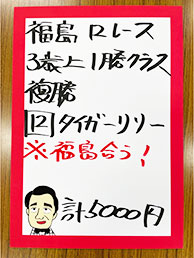 福島12レース
3歳上1勝クラス
複勝
12タイガーリリー
※福島合う!
計5000円